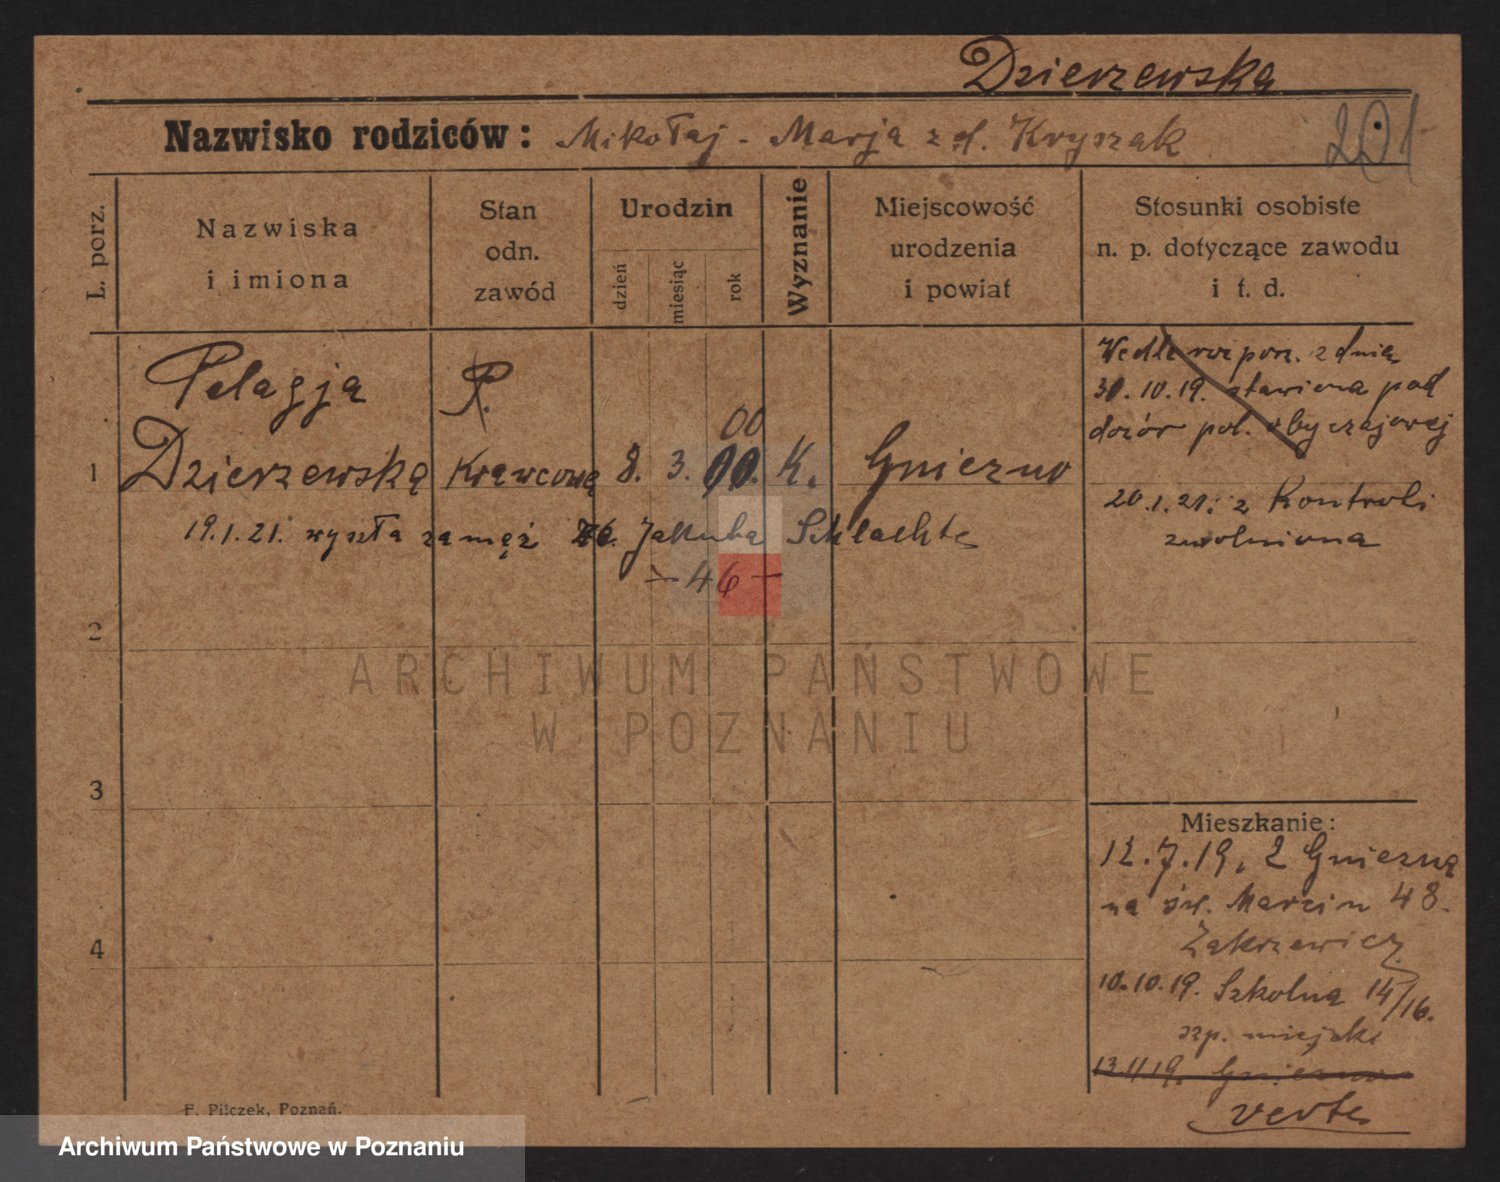 Dzierzewska
Nazwisko rodziców: Mikołaj - Marja z d. Kryszak
201
L. porz.
Nazwiska
i imiona
Stan
odn.
zawód
Urodzin
dzień
miesiąc
rok
Wyznanie
Miejscowość
urodzenia
i powiat
Stosunki osobiste
n. p. dotyczące zawodu
i t. d.
Pelagja
Dzierzewska
P.
Krawcowa
8. 3. 00. K. Gniezno
00
1
19.1.21. wyszła zamęż za Jakuba Schlachte
- 46 -
Wedle rozporz. z dnia
30.10.19. stawiona pod
dozór pol. obyczajowej
20.1.21. z Kontroli
zwolniona
2
3
4
ARCHIWUM PAŃSTWOWE
W POZNANIU
Mieszkanie:
12.7.19, z Gniezna
na św. Marcin 48.
Zakrzewicz
10.10.19. Szkolna 14/16.
szp. miejski
13.11.19. Gniezno
verte
F. Pilczek, Poznań.
Archiwum Państwowe w Poznaniu